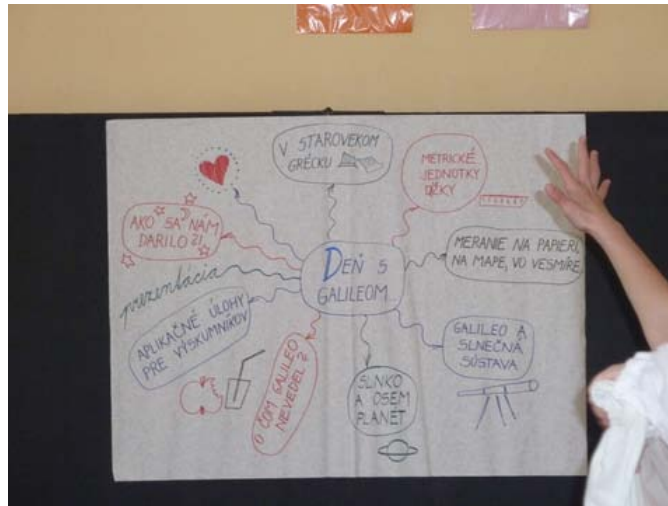 DEŇ S
GALILEOM
V STAROVEKOM
GRÉCKU
METRICKÉ
JEDNOTKY
DĹŽKY
MERANIE NA PAPIERI,
NA MAPE, VO VESMÍRE
GALILEO A
SLNEČNÁ
SÚSTAVA
SLNKO
A OSEM
PLANÉT
O ČOM GALILEO
NEVEDEL?
APLIKAČNÉ ÚLOHY
PRE VÝSKUMNÍKOV
prezentácia
AKO SA NÁM
DARILO?!